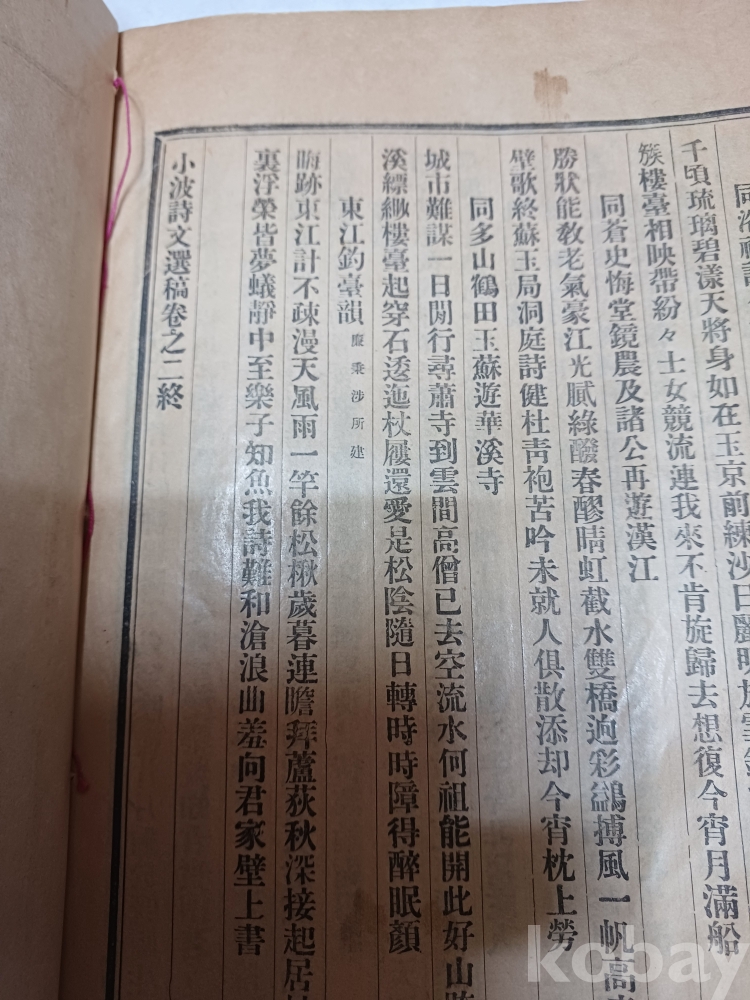 千頃琉璃碧漾天將身如在玉京前練沙日麗明
簇樓臺相映帶紛々士女競流連我來不肯旋歸去想復今宵月滿船
同蒼史悔堂鏡農及諸公再遊漢江
勝狀能教老氣豪江光膩綠醱春醪晴虹截水雙橋逈彩鷁搏風一帆高
壁歌終蘇玉局洞庭詩健杜靑袍苦吟未就人俱散添却今宵枕上勞
同多山鶴田玉蘇遊華溪寺
城市難謀一日閒行尋蕭寺到雲間高僧已去空流水何祖能開此好山
溪縹緲樓臺起穿石逶迤杖屨還愛是松陰隨日轉時時障得醉眠顏
東江釣臺韻 慶乘涉所建
晦跡東江計不疎漫天風雨一竿餘松楸歲暮連瞻拜蘆荻秋深接起居
裏浮榮皆夢蟻靜中至樂子知魚我詩難和滄浪曲羞向君家壁上書
小波詩文選稿卷之二終
kobay